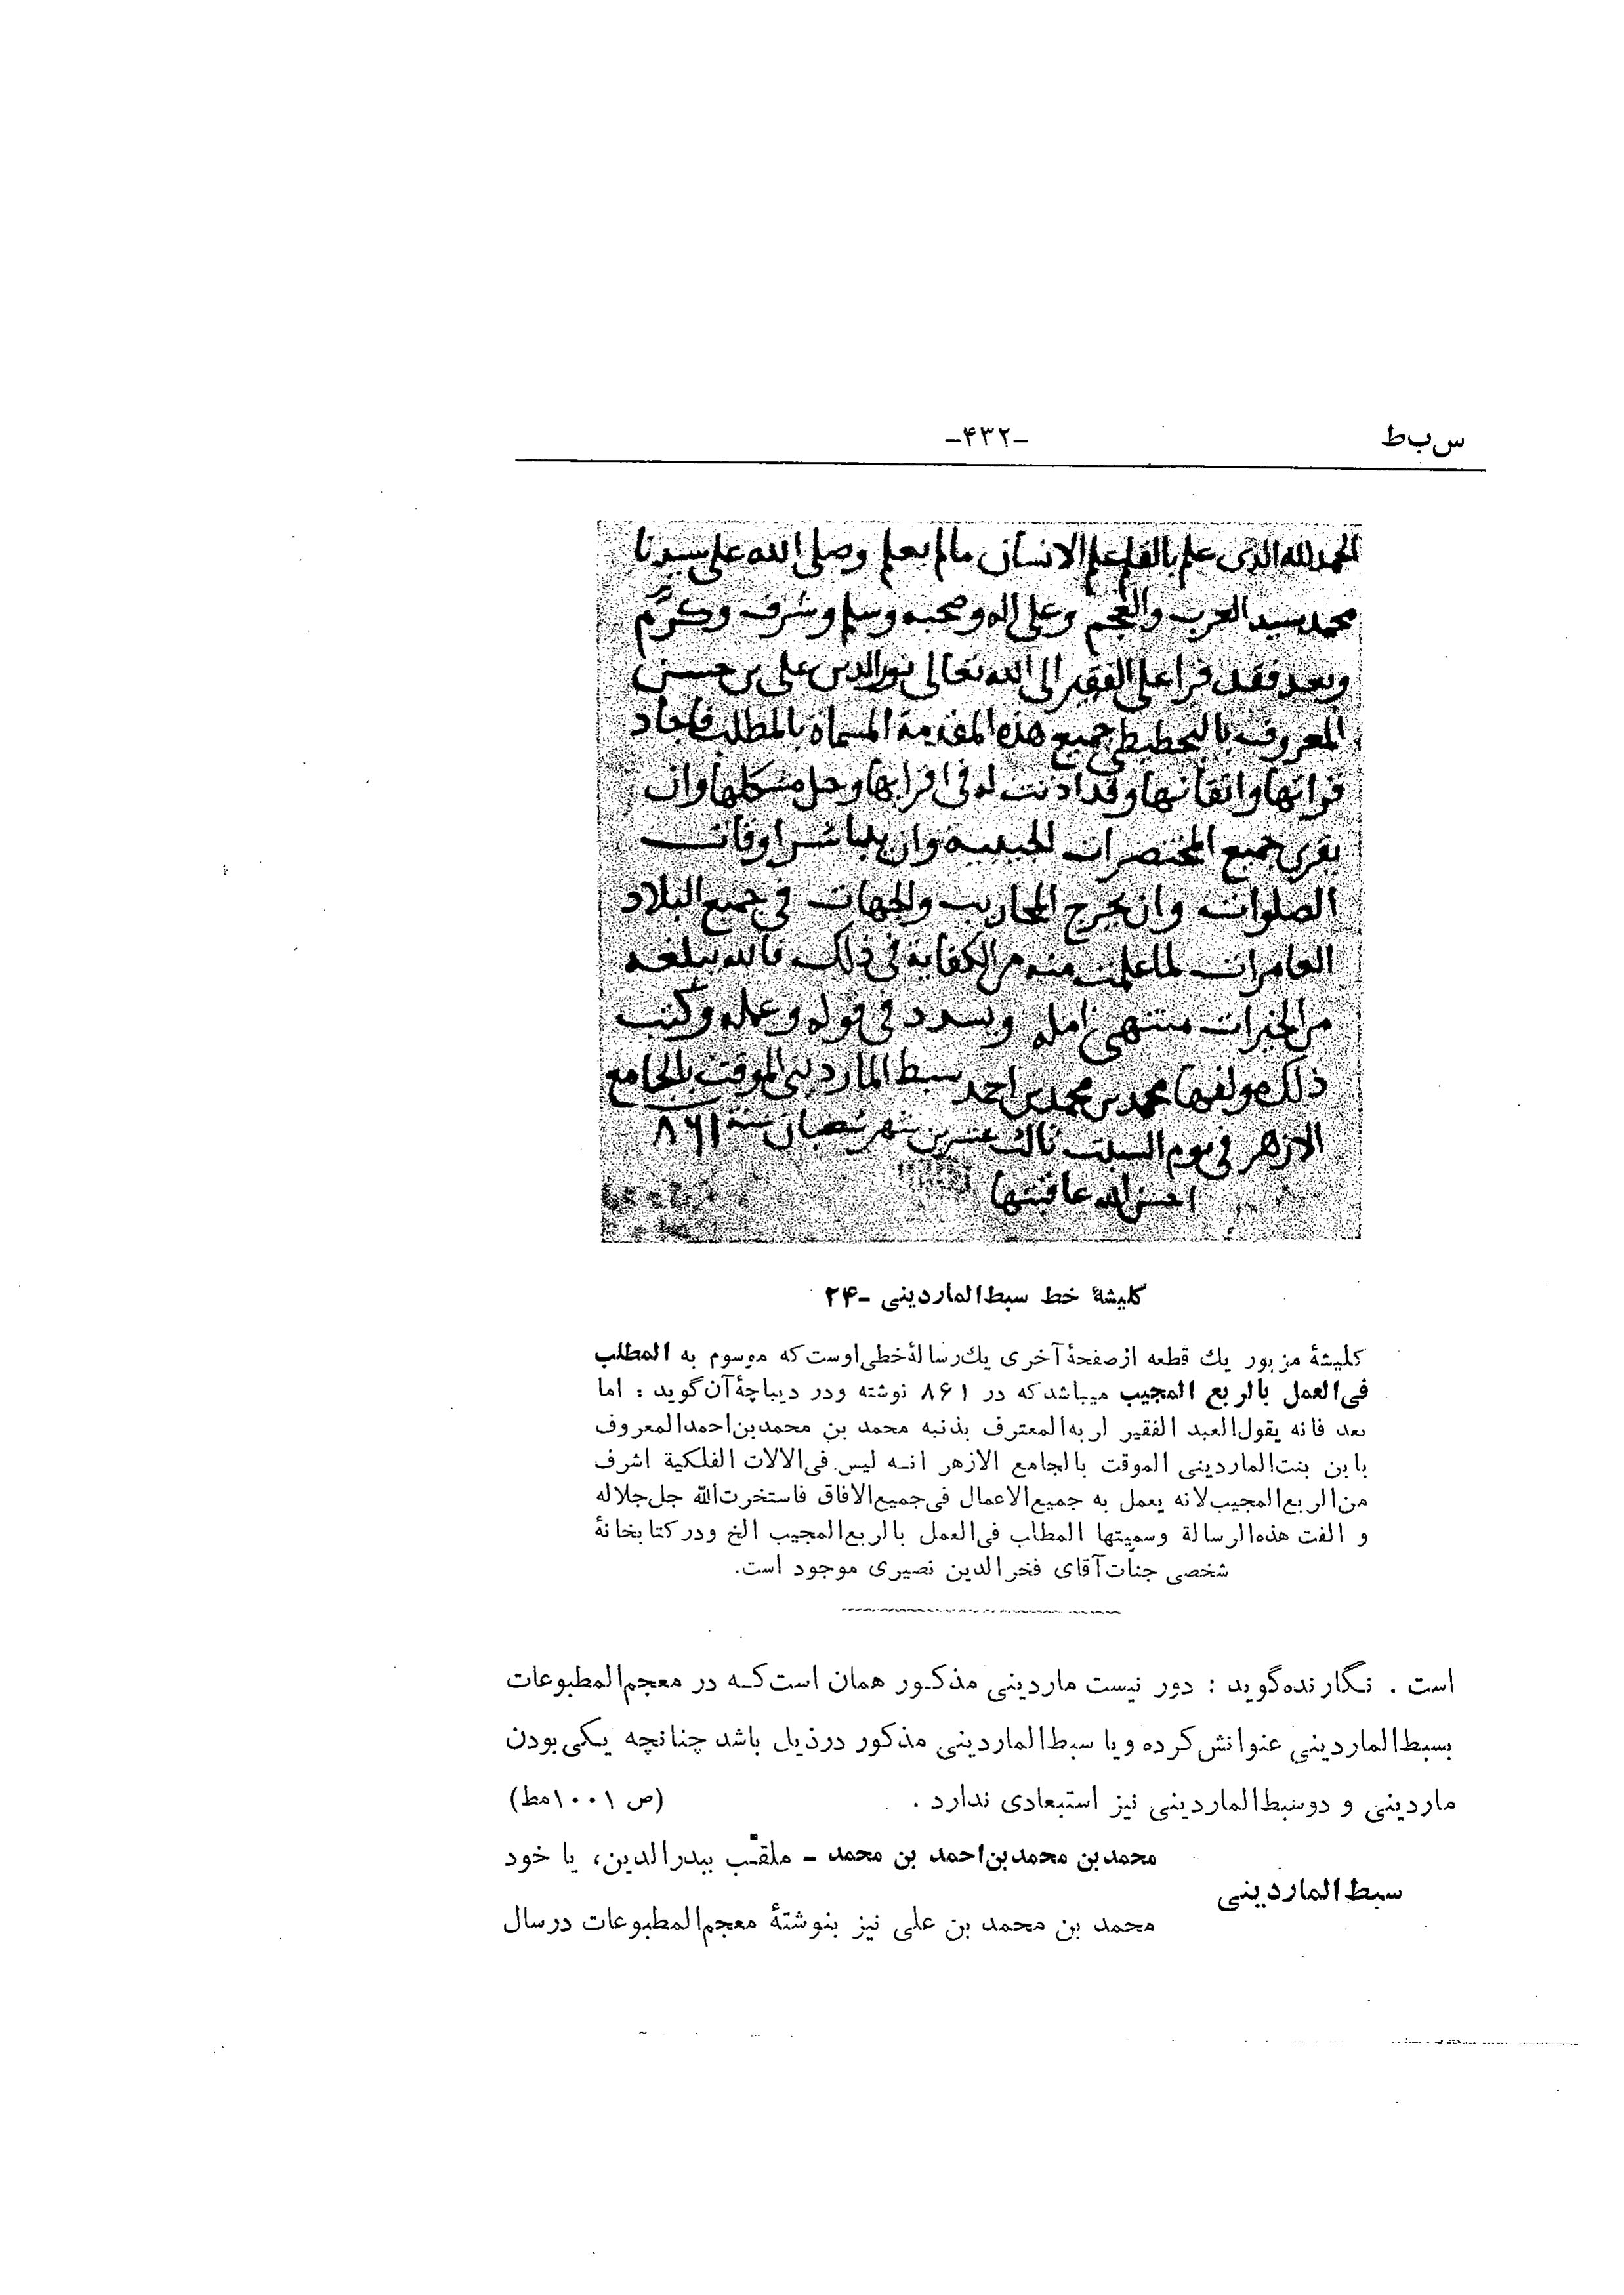 س‌ب‌ط
-۴۳۲-
الحمد لله الذى علم بالقلم علم الانسان مالم يعلم وصلى الله على سيدنا
محمد سيد العرب والعجم وعلى اله وصحبه وسلم وشرف وكرّم
وبعد فقد قرا على الفقير الى الله تعالى نور الدين على بن حسن
المعروف جميع هذه المقدمة المسماة بالمطلب فاجاد
قراتها واتقانها وقد اذنت له فى اقرايها وحل مشكلها وان
يقرى جميع المختصرات الجيبية وان يباشر اوقات
الصلوات وان يخرج المحاريب والجهات فى جميع البلاد
العامرات لما علمت منه من الكفاية فى ذلك فالله يبلغه
من الخيرات منتهى امله ويسدد فى قوله وعمله وكتب
ذلك مولفها محمد بن محمد بن احمد سبط الماردينى الموقت بالجامع
الازهر فى يوم السبت ثالث عشرين شهر شعبان سنة ۸۶۱
احسن الله عاقبتها
كليشۀ خط سبط الماردينى -۲۴
كليشۀ مزبور يك قطعه ازصفحۀ آخرى يك رسالۀ خطى اوست كه موسوم به المطلب
فى العمل بالربع المجيب ميباشد كه در ۸۶۱ نوشته ودر ديباچۀ آن گويد : اما
بعد فانه يقول العبد الفقير لربه المعترف بذنبه محمد بن محمد بن احمد المعروف
بابن بنت الماردينى الموقت بالجامع الازهر انـه ليس فى الالات الفلكية اشرف
من الربع المجيب لانه يعمل به جميع الاعمال فى جميع الافاق فاستخرت الله جل جلاله
و الفت هذه الرسالة وسميتها المطلب فى العمل بالربع المجيب الخ ودر كتابخانۀ
شخصى جناب آقاى فخر الدين نصيرى موجود است.
است . نگارنده گويد : دور نيست ماردينى مذكـور همان است كـه در معجم المطبوعات
بسبط الماردينى عنوانش كرده ويا سبط الماردينى مذكور درذيل باشد چنانچه يكى بودن
ماردينى و دوسبط الماردينى نيز استبعادى ندارد . (ص ۱۰۰۱ مط)
سبط الماردينى
محمد بن محمد بن احمد بن محمد - ملقّب ببدر الدين، يا خود
محمد بن محمد بن على نيز بنوشتۀ معجم المطبوعات درسال